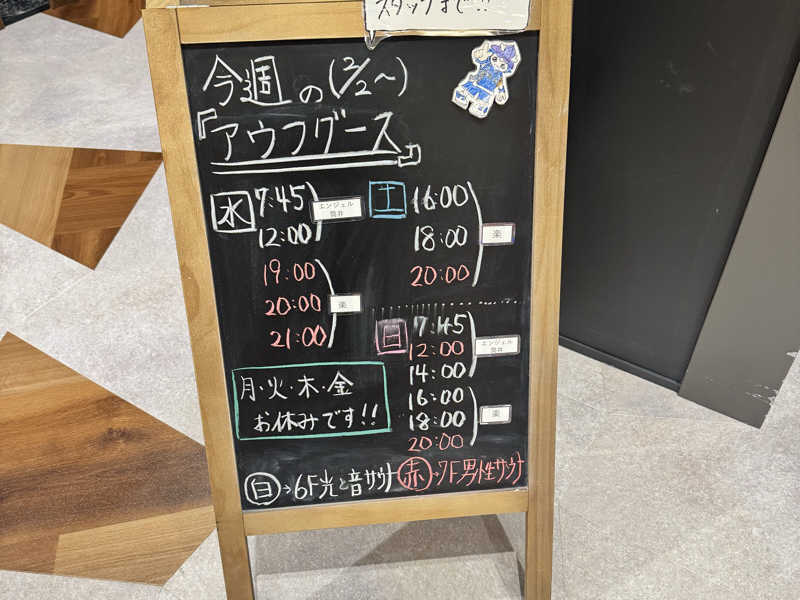 スタッフまで!!
今週の(2/2~)
『アウフグース』
水 7:45
12:00
エンジェル
筒井
19:00
20:00
21:00
楽
土 16:00
18:00
20:00
楽
日 7:45
12:00
14:00
エンジェル
筒井
16:00
18:00
20:00
楽
月・火・木・金
お休みです!!
白→6F光と音サウナ
赤→7F男性サウナ